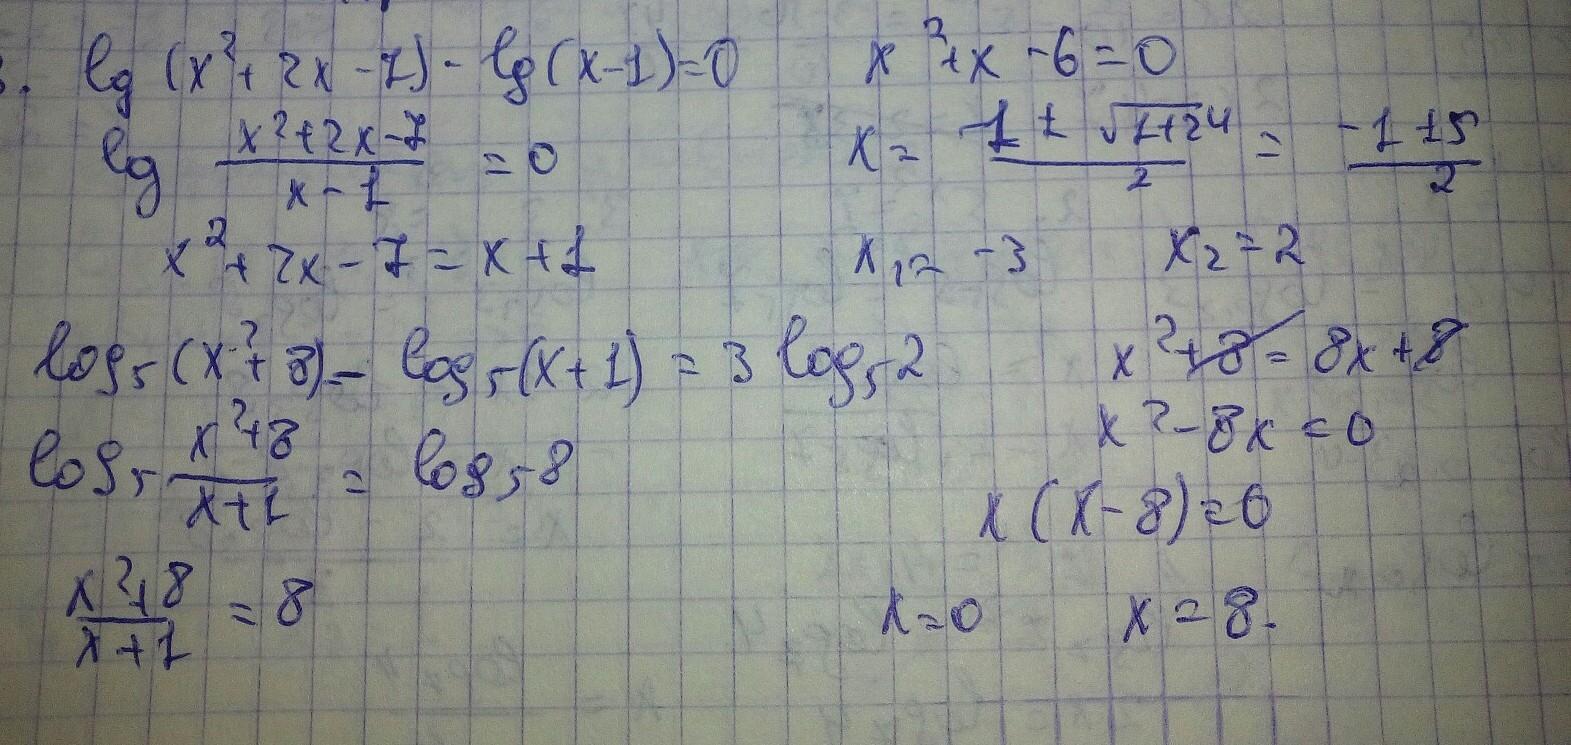 3. lg (x²+2x-7) - lg (x-1)=0
lg (x²+2x-7)/(x-1) = 0
x²+2x-7=x+1
x²+x-6=0
x= (-1±√1+24)/2 = (-1±5)/2
x₁= -3 x₂=2
log₅(x²+8)- log₅(x+1) = 3 log₅2
log₅ (x²+8)/(x+1) = log₅8
(x²+8)/(x+1) = 8
x²+8=8x+8
x²-8x=0
x(x-8)=0
x=0 x=8.